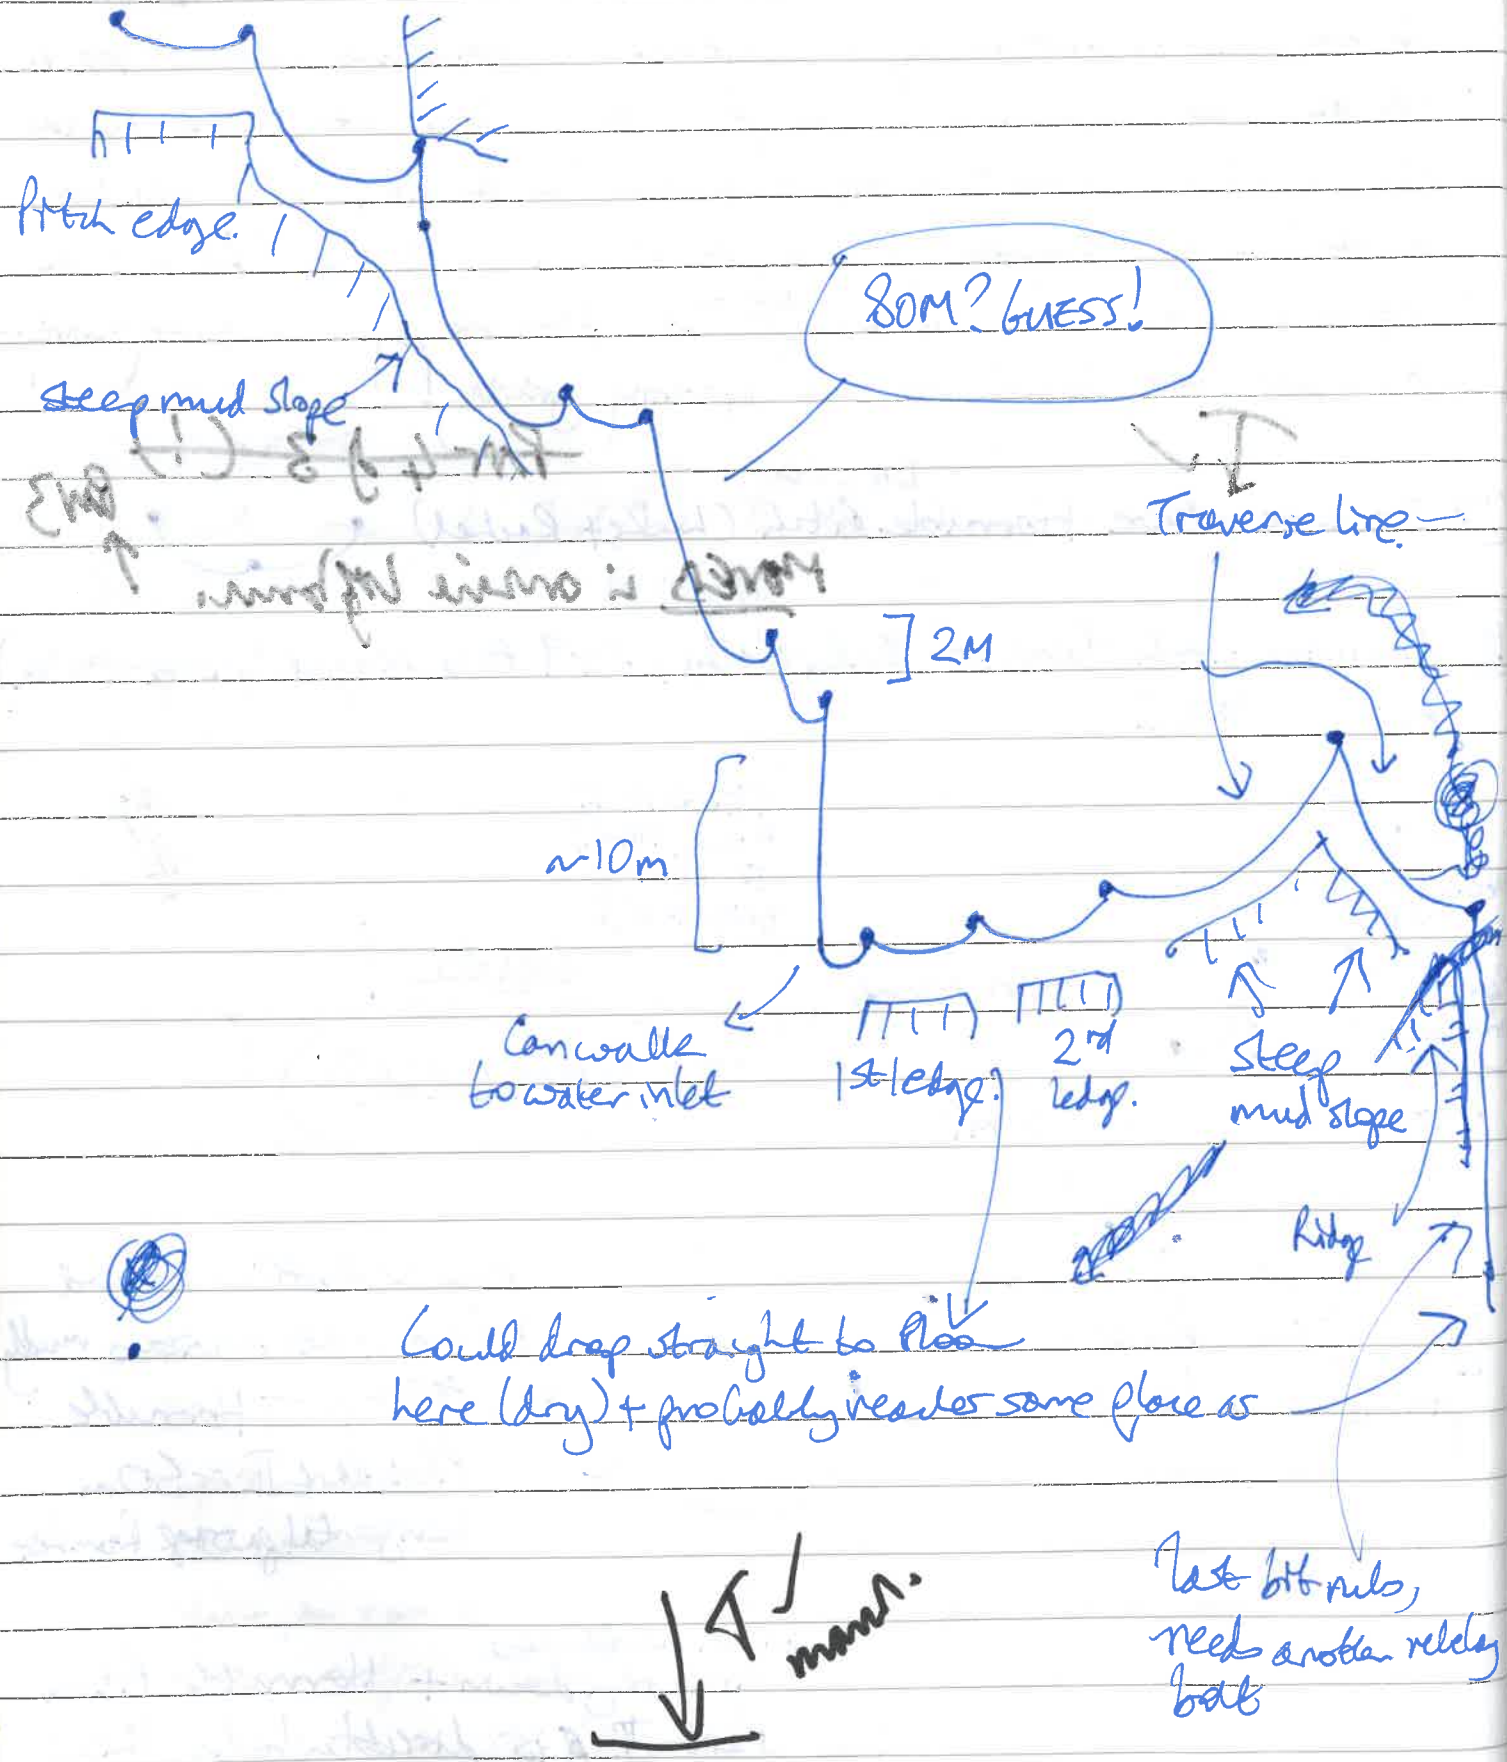 Pitch edge.
80M? GUESS!
steep mud slope
Traverse line
2M
~10m
Can walk
to water inlet
1st ledge.
2nd
ledge.
steep
mud slope
Ridge
Could drop straight to floor
here (dry) + probably reaches same place as
last bit rubs,
needs another rebelay
bolt